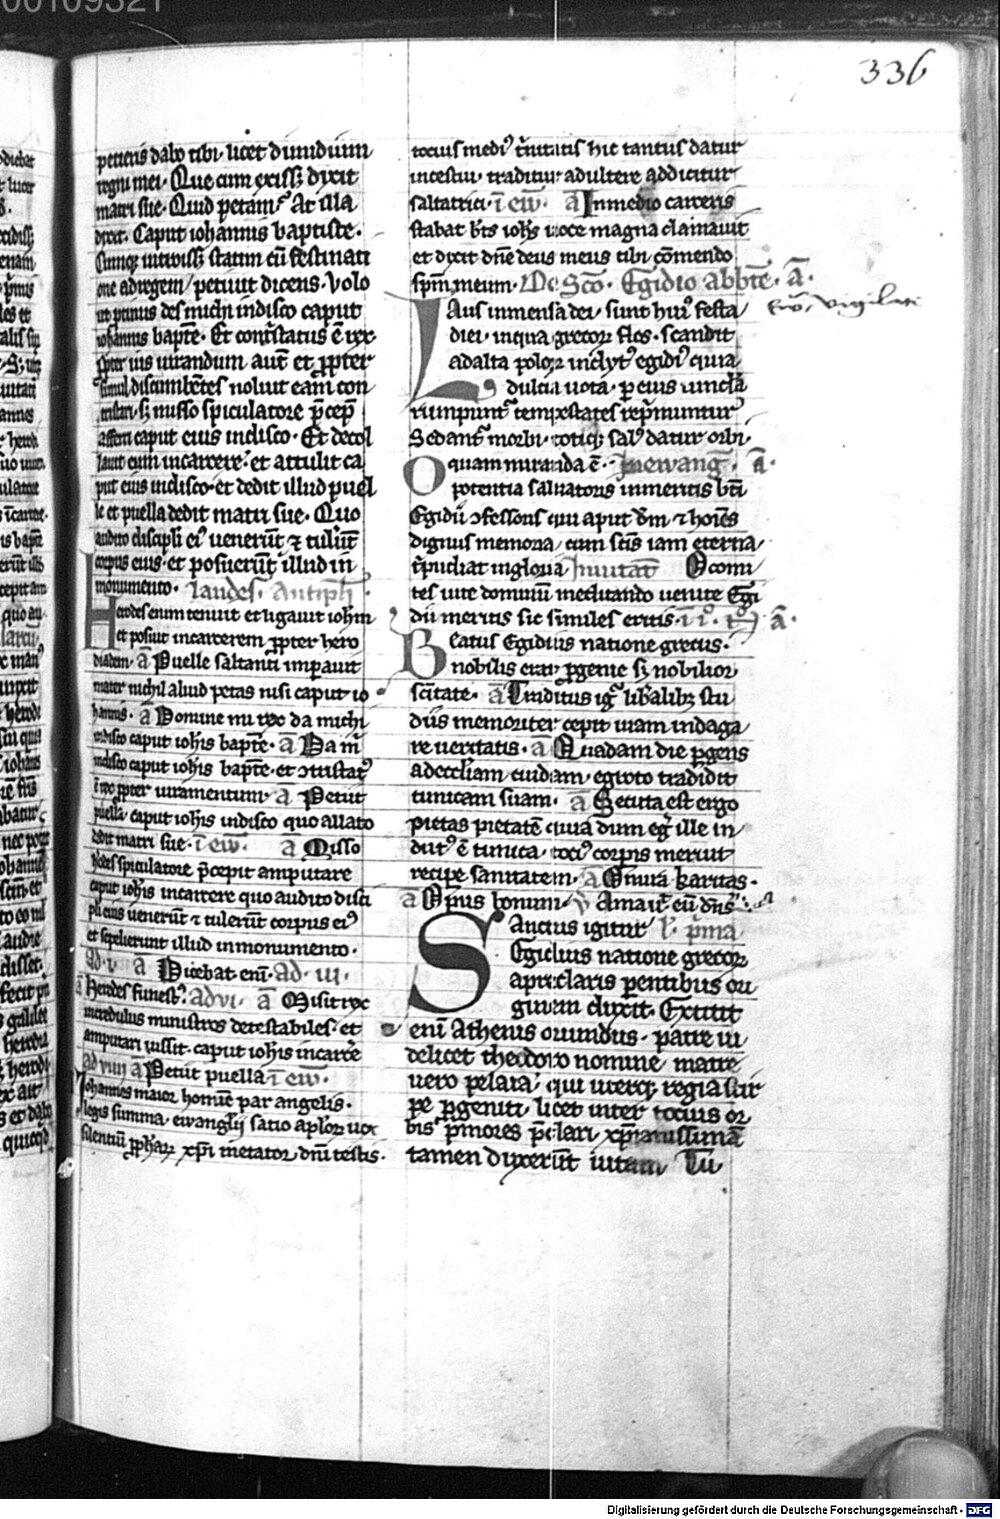 336
petieris dabo tibi licet dimidium
regni mei. Que cum exiss; dixit
matri sue. Quid petam? At illa
dixit. Caput iohannis baptiste.
Cumq; introiss; statim cū festinati
one ad regem petiuit dicens. Volo
ut protinus des michi in disco caput
iohannis bapte. Et contstatus ē rex
propter ius iurandum aut et ppter
simul discumbētes noluit eam con
tristari. sz misso spiculatore pcep
afferri caput eius in disco. Et decol
lauit eum in carcere. et attulit ca
put eius in disco. et dedit illud puel
le et puella dedit matri sue. Quo
audito discipli ei9 venerūt ⁊ tulūt
corpus eius. et posuerūt illud in
monumento. laudes. Antiph
Herodes enim tenuit et ligauit iohm
et posuit in carcerem ppter hero
diadem. ā Puelle saltanti imperauit
mater nichil aliud petas nisi caput io
hannis. ā Domine mi rex da michi
in disco caput iohis bapte. ā Da m
in disco caput iohis bapte. et ɔtristat9
ē rex ppter iuramentum. ā Petiit
puella caput iohis in disco quo allato
dedit matri sue. in ew. ā Misso
herodes spiculatore pcepit amputare
caput iohis in carcere quo audito disci
puli eius venerūt ⁊ tulerūt corpus ei9
et sepelierunt illud in monumento.
Ad .i. ā Dicebat eni. Ad .iii.
ā Herodes funest9. ad vi. ā Misit rex
incredulus ministros detestabiles. et
amputari iussit caput iohis in carcere
ad viiii ā Petiit puella in ew.
Iohannes maior homine par angelis.
legis summa. ewanglii satio aplorum vox
silentiū ppharum xpi metator dni testis.
tocius medi9 trinitatis hic tantus datur
incestui. traditur adultere addicitur
saltatrici. in ew. ā In medio carceris
stabat bts iohs uoce magna clamauit
et dixit dne deus meus tibi cōmendo
spm meum. De Sco. Egidio abbte. ā.
Laus inmensa dei sunt hui9 festa
diei. in qua grecorum flos. scandit
ad alta polorum inclyt9 egidi9 quia
dulcia uota. p eius uincla
rumpuntur tempestates reprimuntur
Sedantur morbi. totiq; sal9 datur orbi.
O quam miranda ē. In ewang. ā.
potentia saluatoris in meritis bti
Egidii ɔfessoris qui aput dm ⁊ hoies
dignus memoria cum scis iam eterna
tripudiat in gloria Inuitat O comi
tes uite dominum meditando uenite Egi
dii meritis sic similes eritis. in i. no. ā.
Beatus Egidius natione grecus.
nobilis erat pgenie sz nobilior
scitate. ā Traditus ig liberalib; stu
diis memoriter cepit uiam indaga
re ueritatis. ā Quadam die pgens
ad eccliam cuidam egroto tradidit
tunicam suam. ā Secuta est ergo
pietas pietatē quia dum eg ille in
dut9 ē tunica toci9 corpis meruit
recipe sanitatem. ā Omnia karitas.
ā Opus bonum. v Amauit eū dns.
Sanctus igitur l. pma
Egidius natione grecorum
a preclaris parentibus ou
ginem duxit. Extitit
eni Athenis oriundus. patre ui
delicet theodoro nomine matre
uero pelaia qui uterq; regia stir
pe pgeniti. licet inter tocius or
bis pmores pclari. xpianissimā
tamen duxerūt uitam Tu